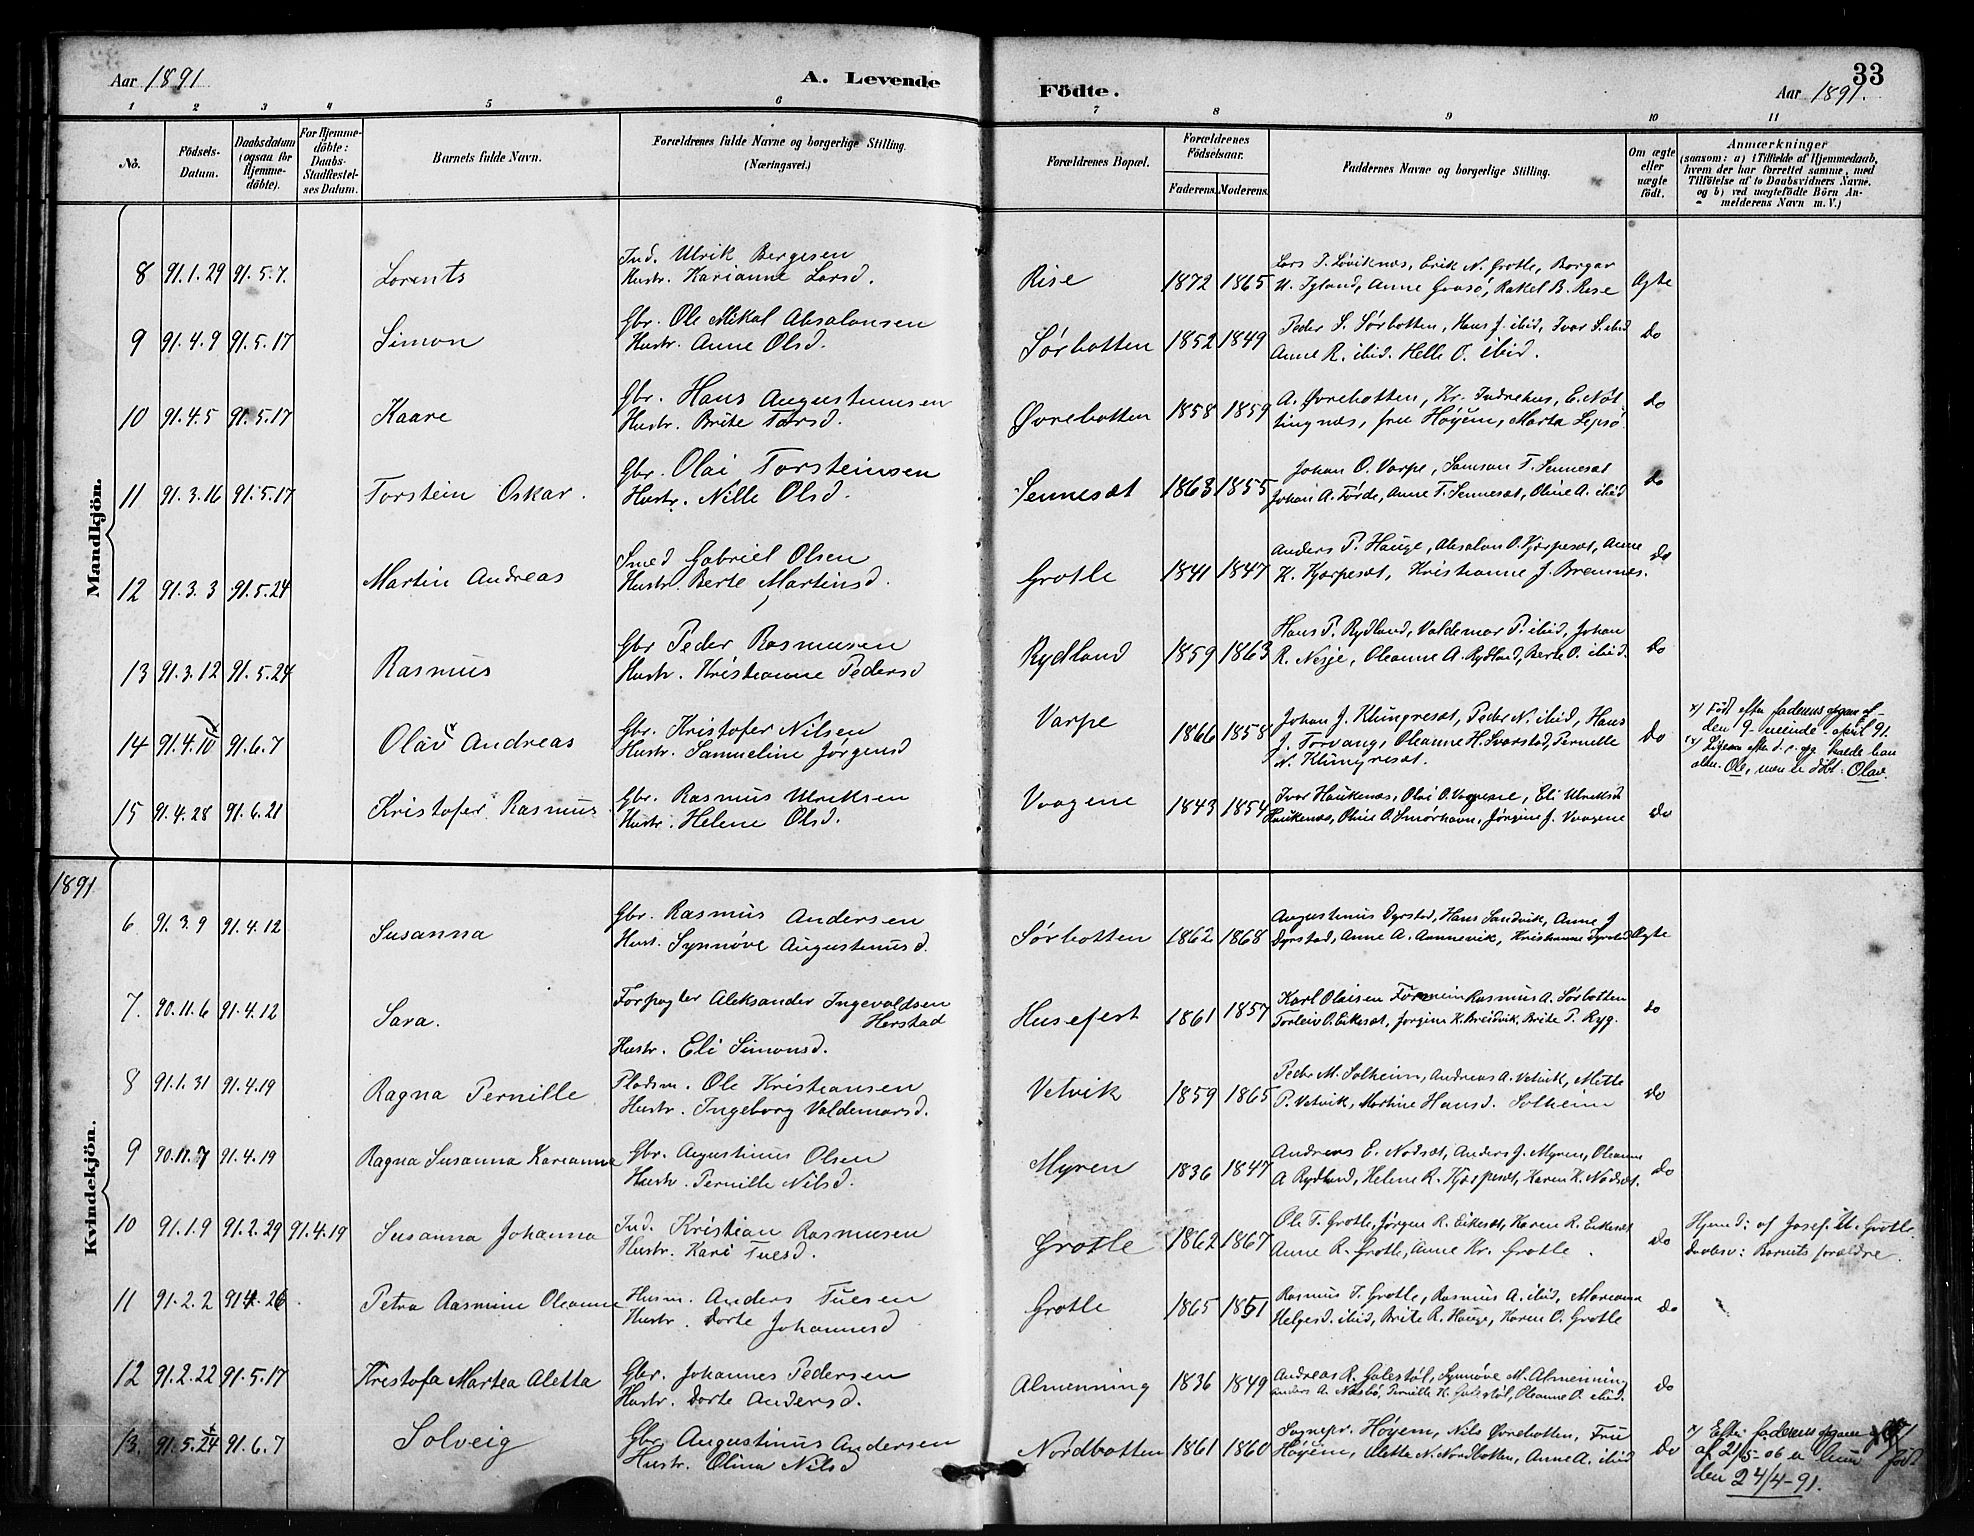 Aar 1891
A. Levende
Födte.
33
Aar 1891.
1 2 3 4 5 6 7 8 9 10 11
No.
Födsels-Datum.
Daabsdatum (ogsaa for Hjemme-döbte).
For Hjemme-döbte: Daabs-Stadfæstel-ses Datum.
Barnets fulde Navn.
Forældrenes fulde Navne og borgerlige Stilling. (Næringsvei.)
Forældrenes Bopæl.
Forældrenes Födselsaar.
Faderens. Moderens.
Faddernes Navne og borgerlige Stilling.
Om ægte eller uægte födt.
Anmærkninger
(saasom: a) i Tilfælde af Hjemmedaab,
hvem der har forrettet samme, med
Tilföielse af to Daabsvidners Navne,
og b) ved uægtefödte Börn An-
melderens Navn m. V.)
Mandkjön.
8 91.1.29 91.5.7. Lorents
Ind. Ulrik Bergesen
Hustr. Karianne Larsd.
Rise 1872 1865
Lars T. Løviknes, Erik N. Grotle, Borgar
U. Igland, Anne Grosø, Rakel B. Rise
Ægte
9 91.4.9 91.5.17 Simon
Gbr. Ole Mikal Absalonsen
Hustr. Anne Olsd.
Sørbotten 1852 1849
Peder S. Sørbotten, Hans J. ibid, Ivar S. ibid
Anne R. ibid. Helle O. ibid.
do
10 91.4.5 91.5.17 Kaare
Gbr. Hans Augustinusen
Hustr. Brite Larsd.
Øvrebotten 1858 1859
A. Øvrebotten, Kr. Indrehus, E. Nøt
tingnæs, fru Høyem, Marta Lepsø.
do
11 91.3.16 91.5.17 Torstein Oskar.
Gbr. Olai Torsteinsen
Hustr. Nille Olsd.
Sennesæt 1863 1855
Johan O. Varpe, Samson T. Sennesæt
Johan A. Førde, Anne T. Sennesæt, Oline A. ibid
do
12 91.3.3 91.5.24 Martin Andreas
Smed Gabriel Olsen
Hustr. Berte Martinsd.
Grotle 1841 1847
Anders P. Hauge, Absalon O. Kjærpesæt, Anne
K. Kjærpesæt, Kristianne J. Bremnes.
do
13 91.3.12 91.5.24 Rasmus
Gbr Peder Rasmusen
Hustr. Kristianne Pedersd
Rydland 1859 1863
Hans P. Rydland, Valdemar P. ibid, Johan
R. Nesje, Oleanne A. Rydland, Berte O. ibid.
do
14 91.4.10 91.6.7 Olav Andreas
Gbr. Kristofer Nilsen
Hustr. Samueline Jørgensd
Varpe 1866 1858
Johan J. Klungresæt, Peder N. ibid, Hans
J. Torvang, Oleanne H. Svarstad, Pernille
N. Klungresæt.
do
x) Föd. efter faderens opgave af
den 9. niende april 91.
Ole, men er döbt: Olav.
15 91.4.28 91.6.21 Kristofer Rasmus
Gbr. Rasmus Ulriksen
Hustr. Helene Olsd.
Vaagene 1843 1854
Ivar Haukenæs, Olai O. Vaagene, Eli Ulriksd
Haukenæs, Oline O. Smørhavn, Jørgine J. Vaagene
do
1891
Kvindekjön.
6 91.3.9 91.4.12 Susanna
Gbr. Rasmus Andersen
Hust. Synnøve Augustinusd.
Sørbotten 1862 1868
Augustinus Dyrstad, Hans Sandvik, Anne J
Dyrstad, Anne A. Aannevik, Kristianne Dyrstad
Ægte
7. 90.11.6 91.4.12 Sara.
Forpagter Aleksander Ingevaldsen
Herstad
Hustr. Eli Simonsd.
Husefest 1861 1857
Karl Olaisen Rasmus A. Sørbotten
Torleiv O. Eikesæt, Jørgine K. Breidvik, Brite P. Ryg.
do
8 91.1.31 91.4.19 Ragna Pernille
Pladsm. Ole Kristiansen
Hustr. Ingeborg Valdemarsd.
Vetvik 1859 1865
Peder M. Solheim, Andreas A. Vetvik, Mette
P. Vetvik, Martine Hansd. Solheim
do
9 90.11.7 91.4.19 Ragna Susanna Karianne
Gbr. Augustinus Olsen
Hustr. Pernille Nilsd.
Myren 1836 1847
Andreas E. Nodsæt, Anders J. Myren, Oleanne
A Rydland, Helene R. Kjærpesæt, Karen K. Nodsæt.
do
10 91.1.9 91.2.29 91.4.19 Susanna Johanna
Ind. Kristian Rasmusen
Hustr. Kari Tuesd.
Grotle 1862 1867
Ole T. Grotle, Jørgen R. Eikesæt, Karen R. Eikesæt
Anne R. Grotle, Anne Kr. Grotle.
do
Hjemd: af Josef M. Grotle
Daabsv: Barnets forældre.
11 91.2.2 91.4.26 Petra Rasmine Oleanne
Husm. Anders Tuesen
Hustr. Dorte Johannesd
Grotle 1865 1861
Rasmus T. Grotle, Rasmus A. ibid, Marianne
Helgesd. ibid, Brite R. Hauge, Karen O. Grotle
do
12 91.2.22 91.5.17 Kristofa Martea Aletta
Gbr. Johannes Pedersen
Hustr. Dorte Andersd.
Almenning 1836 1849
Andreas R. Galestøl, Synnøve M. Almenning
Anders A. Næsbø, Pernille H. Galestøl, Oleanne O. ibid.
do
13. 91.5.24 91.6.7 Solveig
Gbr. Augustinus Andersen
Hustr. Olina Nilsd
Nordbotten 1861 1860
Sognepr. Høyem, Nils Øvrebotten, Fru
Høyem, Aletta N. Nordbotten, Anne A. ibid
do
x) Efter faderens opgave
af 21/5-06 er hun föd
den 24/4-91.